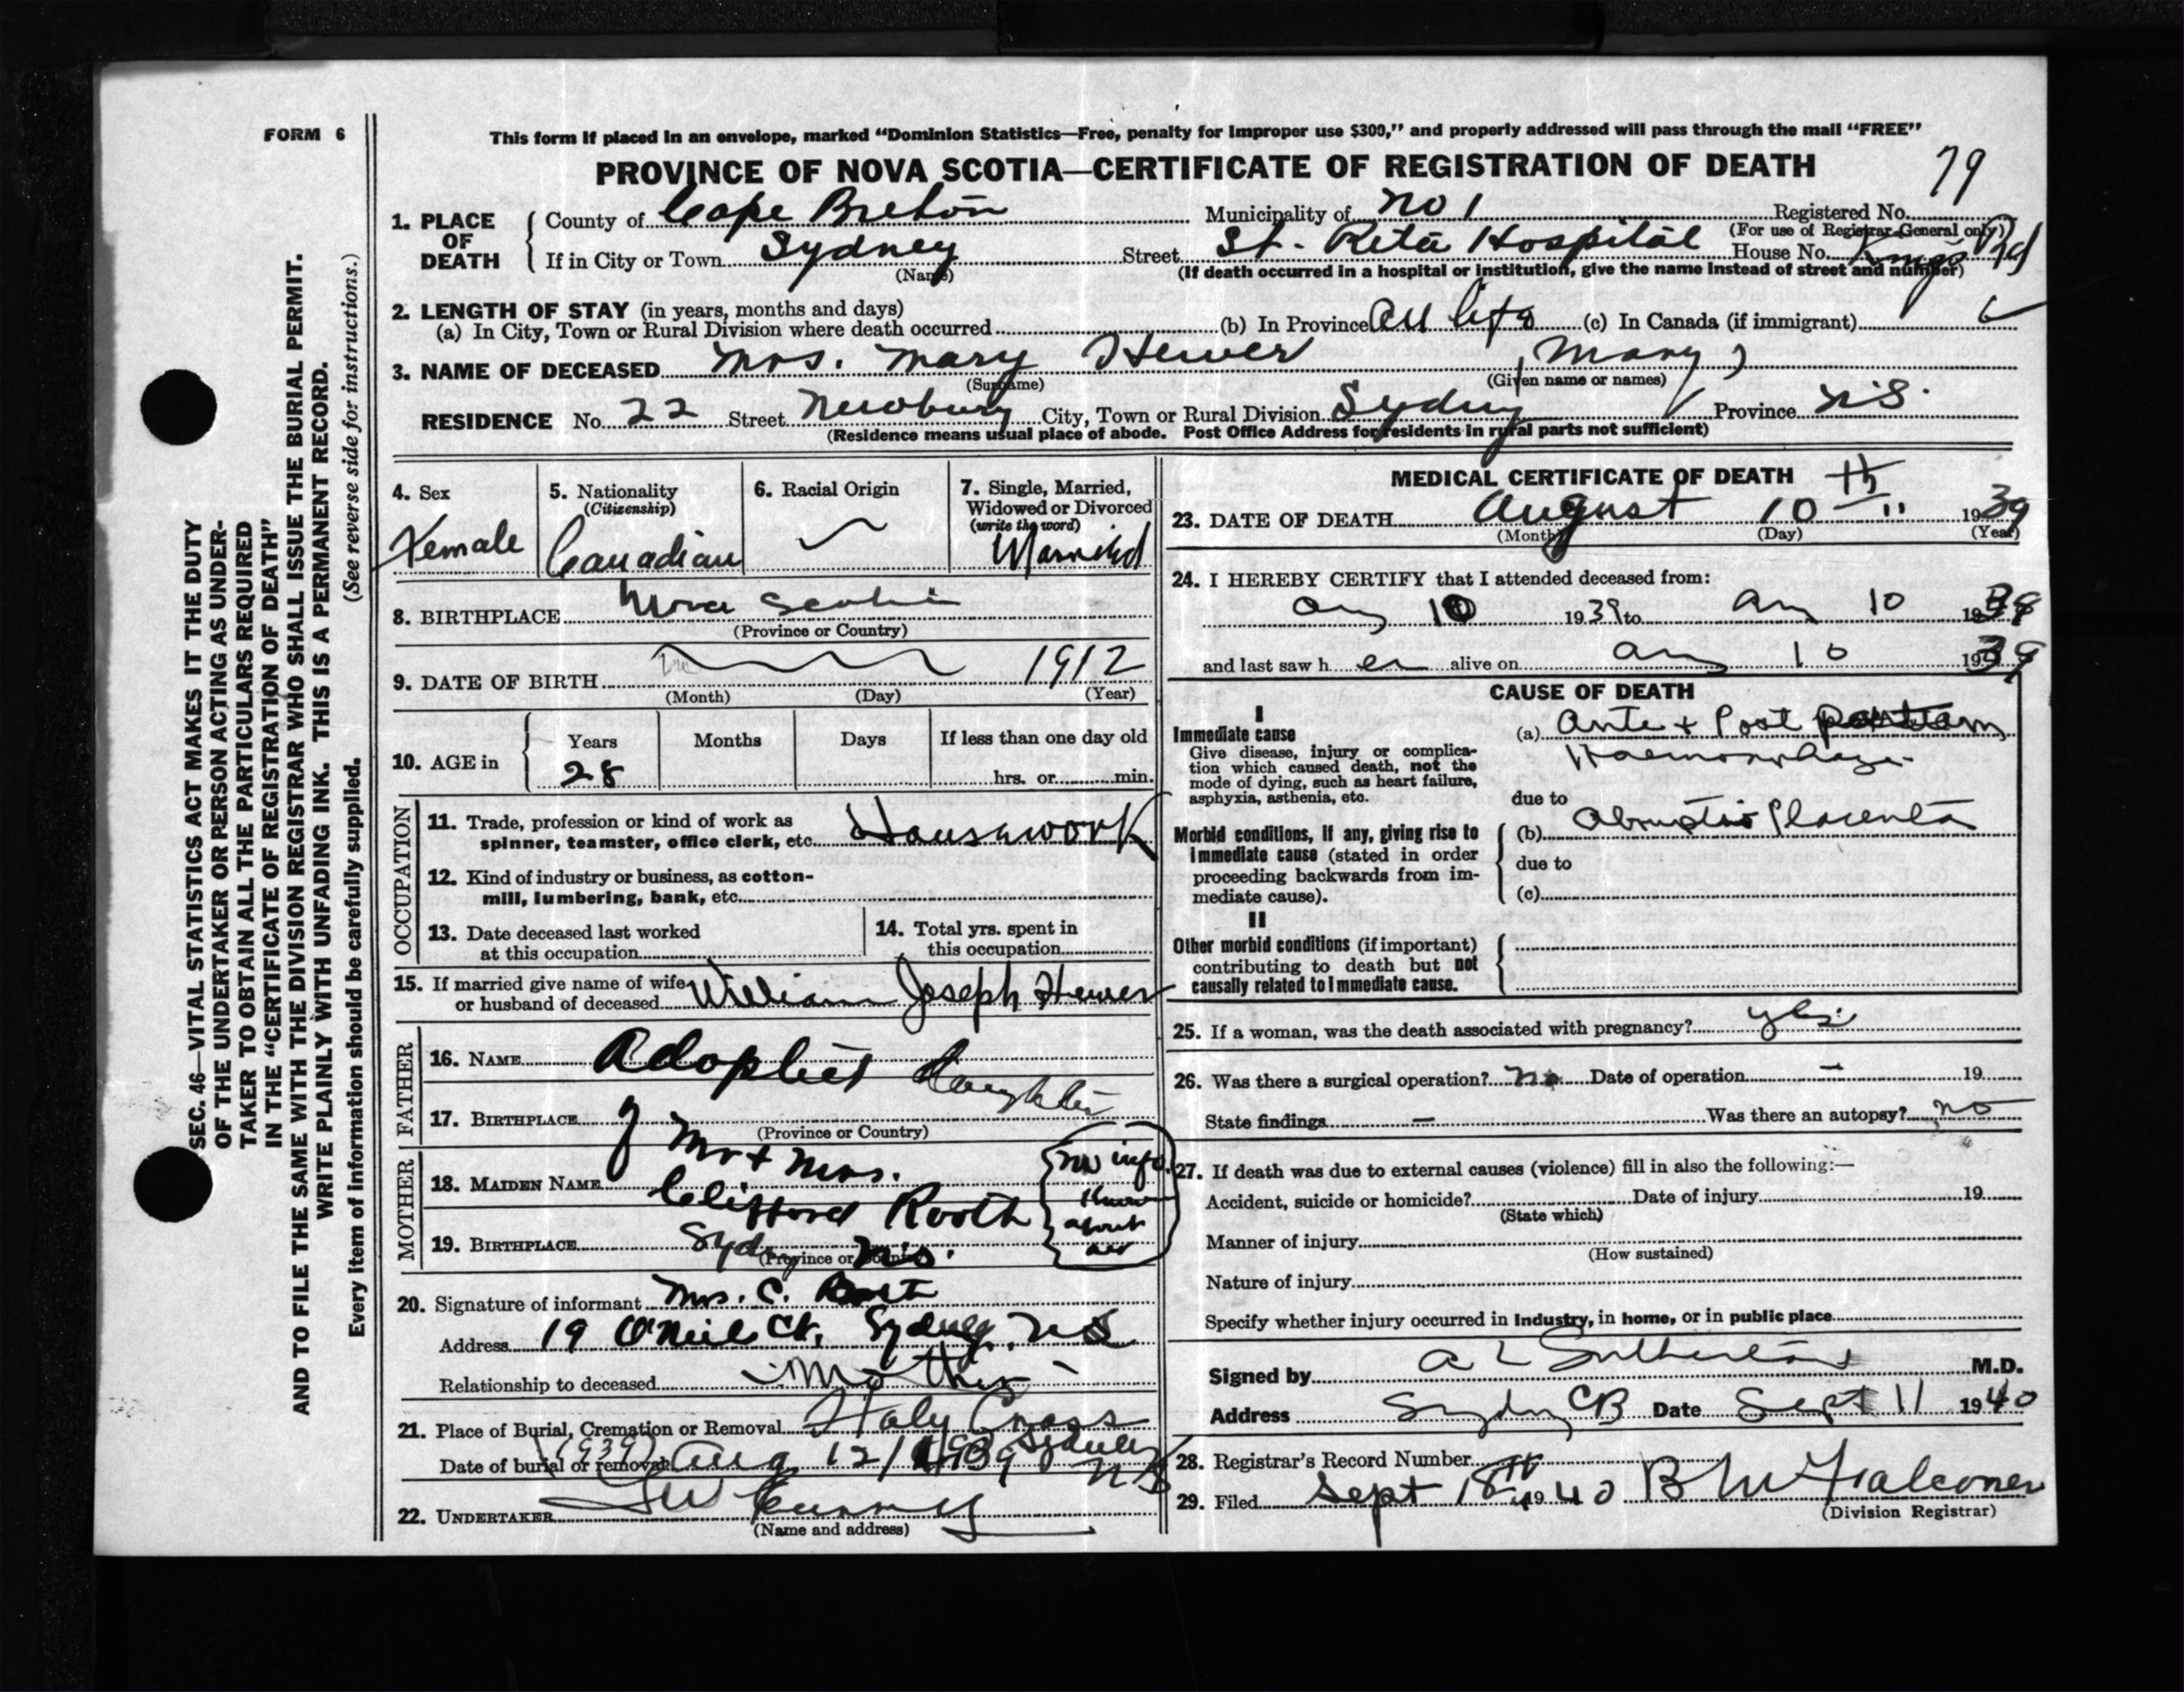 FORM 6
This form if placed in an envelope, marked "Dominion Statistics—Free, penalty for improper use $300," and properly addressed will pass through the mail "FREE"
PROVINCE OF NOVA SCOTIA—CERTIFICATE OF REGISTRATION OF DEATH
79
1. PLACE OF DEATH { County of Cape Breton Municipality of No 1 Registered No.
(For use of Registrar-General only)
If in City or Town Sydney Street St. Rita Hospital House No. Kings Rd
(Name) (If death occurred in a hospital or institution, give the name instead of street and number)
2. LENGTH OF STAY (in years, months and days)
(a) In City, Town or Rural Division where death occurred (b) In Province All life (c) In Canada (if immigrant)
3. NAME OF DECEASED Mrs. Mary Hewer (Mary)
(Surname) (Given name or names)
RESIDENCE No. 22 Street Newbury City, Town or Rural Division Sydney Province N.S.
(Residence means usual place of abode. Post Office Address for residents in rural parts not sufficient)
4. Sex Female
5. Nationality (Citizenship) Canadian
6. Racial Origin
7. Single, Married, Widowed or Divorced (write the word) Married
8. BIRTHPLACE Nova Scotia
(Province or Country)
9. DATE OF BIRTH 1912
(Month) (Day) (Year)
10. AGE in Years Months Days If less than one day old
28 hrs. or min.
OCCUPATION
11. Trade, profession or kind of work as spinner, teamster, office clerk, etc. Housework
12. Kind of industry or business, as cotton-mill, lumbering, bank, etc.
13. Date deceased last worked at this occupation
14. Total yrs. spent in this occupation
15. If married give name of wife or husband of deceased William Joseph Hewer
FATHER
16. NAME Adopted daughter
17. BIRTHPLACE of
(Province or Country)
MOTHER
Mr + Mrs.
18. MAIDEN NAME Clifford Rooth
19. BIRTHPLACE Syd N.S.
(Province or Country)
no info. know about her
20. Signature of informant Mrs. C. Rooth
Address 19 O'Neil Ct. Sydney. N S
Relationship to deceased Mother
21. Place of Burial, Cremation or Removal Holy Cross Sydney NS
Date of burial or removal (1939) Aug 12/1939
22. UNDERTAKER
(Name and address)
MEDICAL CERTIFICATE OF DEATH
23. DATE OF DEATH August 10th 1939
(Month) (Day) (Year)
24. I HEREBY CERTIFY that I attended deceased from:
Aug 10 1939 to Aug 10 1939
and last saw her alive on Aug 10 1939
CAUSE OF DEATH
I
Immediate cause
Give disease, injury or complication which caused death, not the mode of dying, such as heart failure, asphyxia, asthenia, etc.
(a) Ante + Post partum
Haemorrhage
due to
Morbid conditions, if any, giving rise to immediate cause (stated in order proceeding backwards from immediate cause).
(b) Abruptio Placenta
due to
(c)
II
Other morbid conditions (if important) contributing to death but not causally related to immediate cause.
25. If a woman, was the death associated with pregnancy? yes
26. Was there a surgical operation? No Date of operation — 19
State findings — Was there an autopsy? no
27. If death was due to external causes (violence) fill in also the following:—
Accident, suicide or homicide? Date of injury 19
(State which)
Manner of injury
(How sustained)
Nature of injury
Specify whether injury occurred in industry, in home, or in public place
Signed by A L Sutherland M.D.
Address Sydney CB Date Sept 11 1940
28. Registrar's Record Number
29. Filed Sept 18th 1940 B McFalconer
(Division Registrar)
SEC. 46—VITAL STATISTICS ACT MAKES IT THE DUTY
OF THE UNDERTAKER OR PERSON ACTING AS UNDER-
TAKER TO OBTAIN ALL THE PARTICULARS REQUIRED
IN THE "CERTIFICATE OF REGISTRATION OF DEATH"
AND TO FILE THE SAME WITH THE DIVISION REGISTRAR WHO SHALL ISSUE THE BURIAL PERMIT.
WRITE PLAINLY WITH UNFADING INK. THIS IS A PERMANENT RECORD.
Every item of information should be carefully supplied. (See reverse side for instructions.)